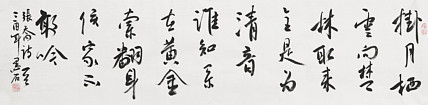 掛月栖
雲向楚
林取来
全是為
清音
誰知系
在黄金
索翻畏
侯家不
敢吟
張喬詩